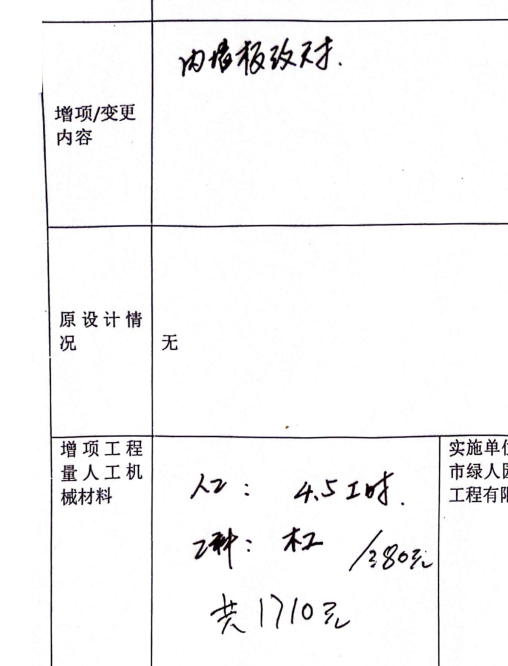 内墙板改尺寸.
增项/变更
内容
原设计情
况
无
增项工程
量人工机
械材料
人工: 4.5工时.
工种: 木工 /380元
共1710元
实施单位
市绿人园
工程有限